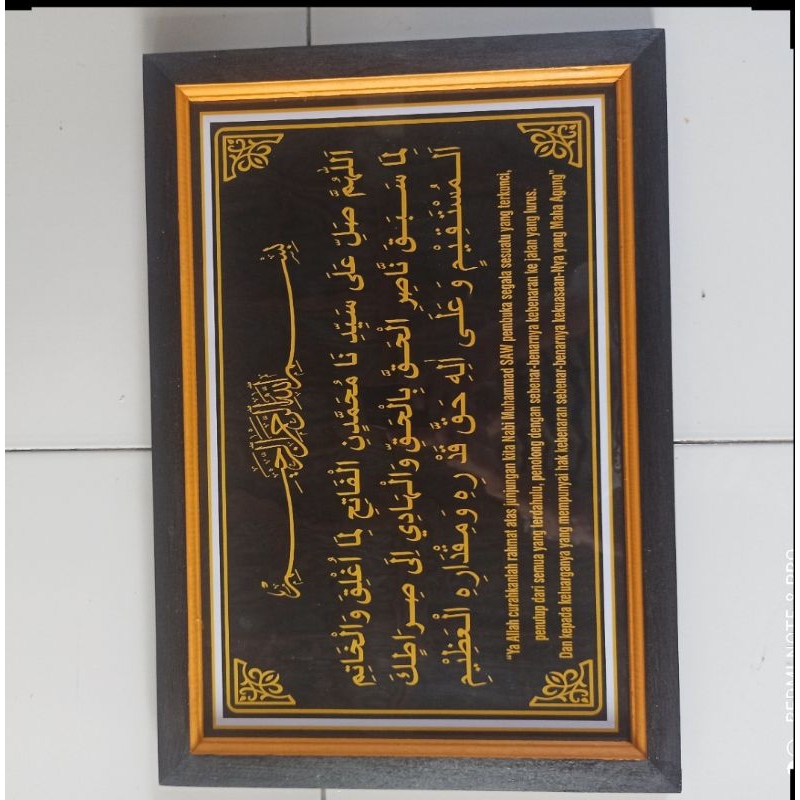 بِسْمِ اللّٰهِ الرَّحْمٰنِ الرَّحِيْمِ
اَللّٰهُمَّ صَلِّ عَلَى سَيِّدِ نَا مُحَمَّدِنِ الْفَاتِحِ لِمَا أُغْلِقَ وَالْخَاتِمِ
لِمَا سَبَقَ نَاصِرِ الْحَقِّ بِالْحَقِّ وَالْهَادِي اِلَى صِرَاطِكَ
الْمُسْتَقِيْمِ وَعَلَى اٰلِهِ حَقَّ قَدْرِهِ وَمِقْدَارِهِ الْعَظِيْمِ
“Ya Allah curahkanlah rahmat atas junjungan kita Nabi Muhammad SAW pembuka segala sesuatu yang terkunci,
penutup dari semua yang terdahulu, penolong dengan sebenar-benarnya kebenaran ke jalan yang lurus.
Dan kepada keluarganya yang mempunyai hak kebenaran sebenar-benarnya kekuasaan-Nya yang Maha Agung”
REDMI NOTE 8 PRO